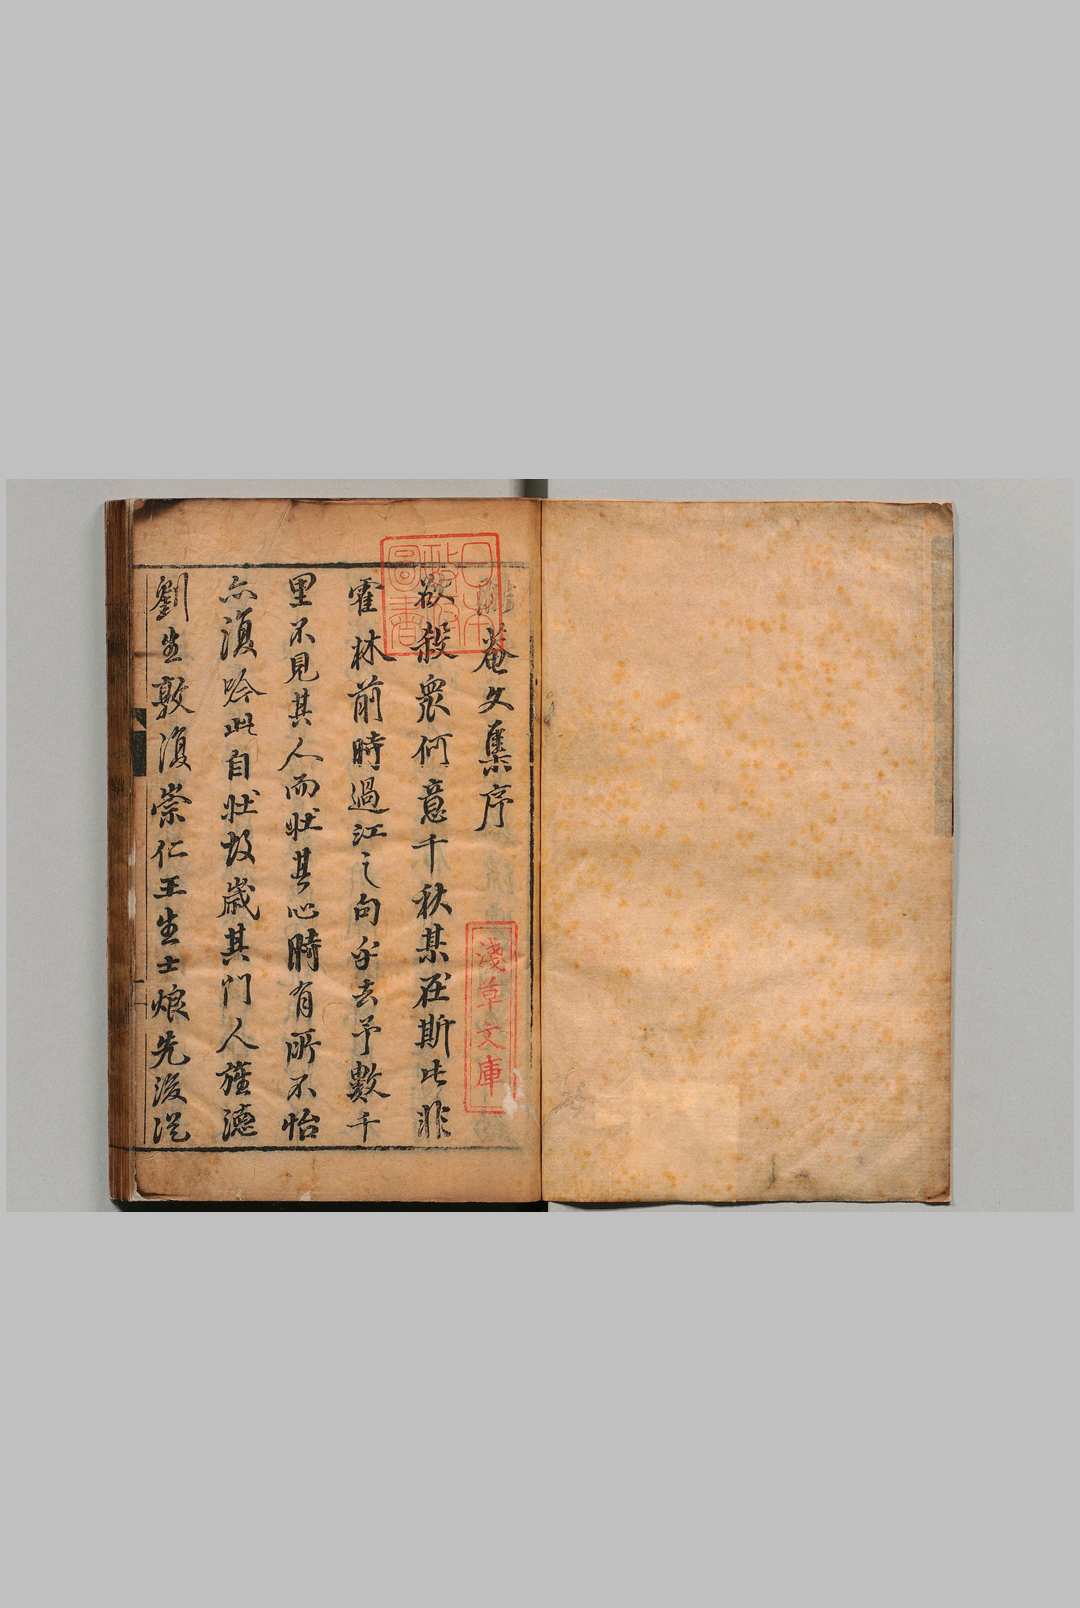 睡菴文集序
欲殺衆何意千秋某在斯此非
霍林前時過江之句乎去予數千
里不見其人而壯其心時有所不怡
亦復吟此自壯故歲其門人旌德
劉生敦復崇仁王生士烺先後從
日本政府圖書
淺草文庫